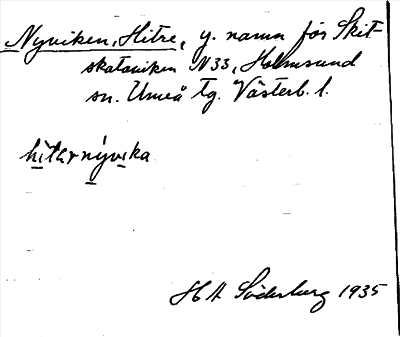 Nyviken, Hitre, y. namn för Skit-
skataviken N33, Holmsund
sn. Umeå tg. Västerb. l.
hìtərnývika
H A Söderburg 1935